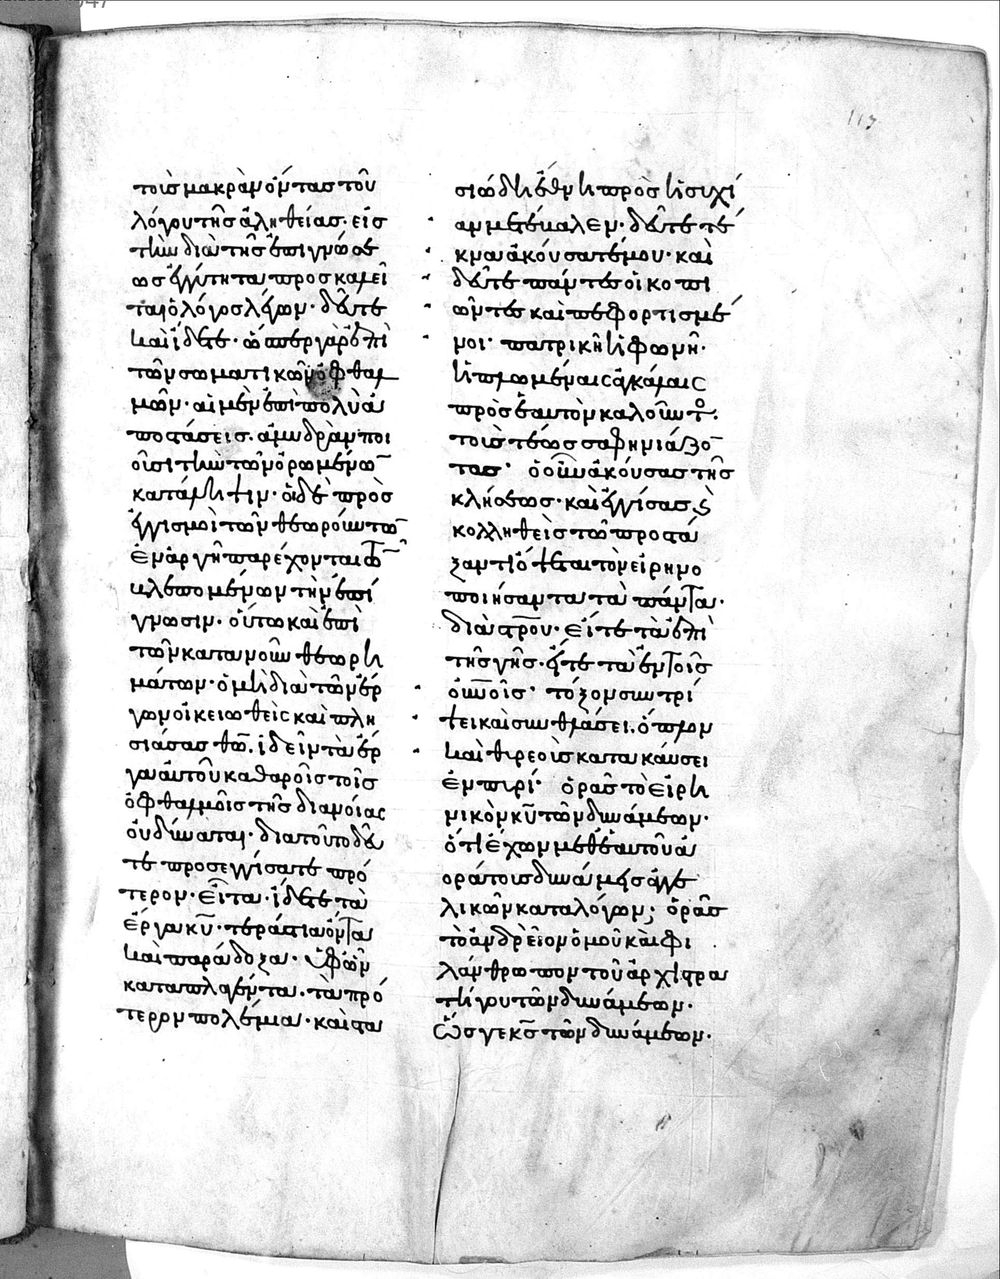 117
τοῖς μακρὰν ὄντας τοῦ
λόγου τῆς ἀληθείας· εἰς
τὴν διὰ τῆς ἐπιγνώσε
ως ἐγγύτητα προσκαλεῖ
ται ὁ λόγος λέγων· δεῦτε
καὶ ἴδετε· ὥσπερ γὰρ ἐπὶ
τῶν σωματικῶν ὀφθαλ
μῶν· αἱ μὲν ἐπὶ πολὺ ἀ
ποστάσεις· ἀμυδρὰν ποι
οῦσι τὴν τῶν ὁρωμένω
κατάληψιν· οἱ δὲ προσ
εγγισμοὶ τῶν θεωρούντω
ἐναργῆ παρέχονται τῶ
βλεπομένων τὴν ἐπί
γνωσιν· οὕτω καὶ ἐπὶ
τῶν κατὰ νοῦν θεωρη
μάτων· ὁ μὴ διὰ τῶν ἔρ
γων οἰκειωθεὶς καὶ πλη
σιάσας θῶ, ἰδεῖν τὰ ἔρ
γα αὐτοῦ καθαροῖς τοῖς
ὀφθαλμοῖς τῆς διανοίας
οὐ δύναται· διὰ τοῦτο δεῦ
τε προσεγγίσατε πρό
τερον· εἶτα ἴδετε τὰ
ἔργα κυ· τεράστια ὄντα
καὶ παράδοξα· ὑφ' ὧν
καταπλαγέντα· τὰ πρό
τερον πολέμια· καὶ στα
σιώδη ἔθνη πρὸς ἡσυχί
αν μετέβαλεν· δεῦτε τέ
κνα ἀκούσατέ μου· καὶ
δεῦτε πάντες οἱ κοπι
ῶντες καὶ πεφορτισμέ
νοι· πατρικὴ ἡ φωνὴ·
ἡπλωμέναις ἀγκάλαις
πρὸς ἑαυτὸν καλοῦντο
τοὺς τέως ἀφηνιάζο
τας· ὁ οὖν ἀκούσας τῆς
κλήσεως· καὶ ἐγγίσας καὶ
κολληθεὶς τῶ προστά
ξαντι ὄψεται τὸν εἰρηνο
ποιήσαντα τὰ πάντα·
διὰ στρου· εἴτε τὰ ἐπὶ
τῆς γῆς· εἴτε τὰ ἐν τοῖς
οὐνοῖς· τόξον συντρί
ψει καὶ συνθλάσει ὅπλον
καὶ θυρεοὺς κατακαύσει
ἐν πυρί· ὁρᾶς τὸ εἰρη
νικὸν κυ τῶν δυνάμεων·
ὅτι ἔχων μεθ' ἑαυτοῦ ἀ
οράτους δυνάμεις ἀγγε
λικῶν καταλόγων; ὁρᾶς
τὸ ἀνδρεῖον ὁμοῦ καὶ φι
λάνθρωπον τοῦ ἀρχιστρα
τήγου τῶν δυνάμεων·
ὥς γε κς τῶν δυνάμεων·